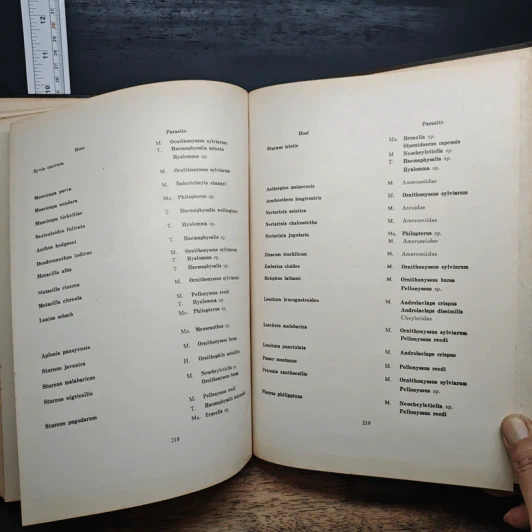 Host Parasite
M. Ornithonyssus sylviarum
T. Haemaphysalis
Hyalomma sp.
Muscicapa parva M. Ornithonyssus sylviarum
Muscicapa sundara M. Bakericheyla chanayi
Muscicapa tickelliae Ms. Philopterus sp.
Saxicoloides fulicata T. Haemaphysalis wellingtoni
Anthus hodgsoni T. Hyalomma sp.
Dendronanthus indicus T. Haemaphysalis sp.
Motacilla alba M. Ornithonyssus sylviarum
T. Hyalomma sp.
Motacilla cinerea T. Haemaphysalis sp.
Motacilla citreola M. Ornithonyssus sylviarum
Lanius schach M. Pellonyssus reedi
T. Hyalomma sp.
Ms. Philopterus sp.
Aplonis panayensis Ms. Menacanthus sp.
Sturnus javanica M. Ornithonyssus bursa
Sturnus malabaricus H. Ornithophila metallica
Sturnus nigricollis M. Neocheyletiella sp.
Ornithonyssus bursa
Sturnus pagodarum M. Pellonyssus reedi
T. Haemaphysalis intermedia
Ms. Brueelia sp.
218
Host Parasite
Sturnus tristis Ms. Brueelia sp.
Sturnidoecus capensis
M Neocheyletiella sp.
T. Haemaphysalis sp.
Hyalomma sp.
Anthreptes malacensis M. Ameroseiidae
Arachnothera longirostris M. Ornithonyssus sylviarum
Nectarinia asiatica M. Ascaidae
Nectarinia chalcostetha M. Ameroseiidae
Nectarinia jugularis Ms. Philopterus sp.
M. Ameroseiidae
Dicaeum trochileum M. Ameroseiidae
Emberiza cioides M. Ornithonyssus sylviarum
Melophus lathami M. Ornithonyssus bursa
Pellonyssus sp.
Lonchura leucogastroides M. Androlaelaps crispus
Androlaelaps dissimilis
Cheyletidae
Lonchura malabarica M. Ornithonyssus sylviarum
Pellonyssus reedi
Lonchura punctulata M. Androlaelaps crispus
Passer montanus M. Pellonyssus reedi
Petronia xanthocollis M. Ornithonyssus sylviarum
Pellonyssus sp.
Ploceus philippinus M. Neocheyletiella sp.
Pellonyssus reedi
219
12
11
10